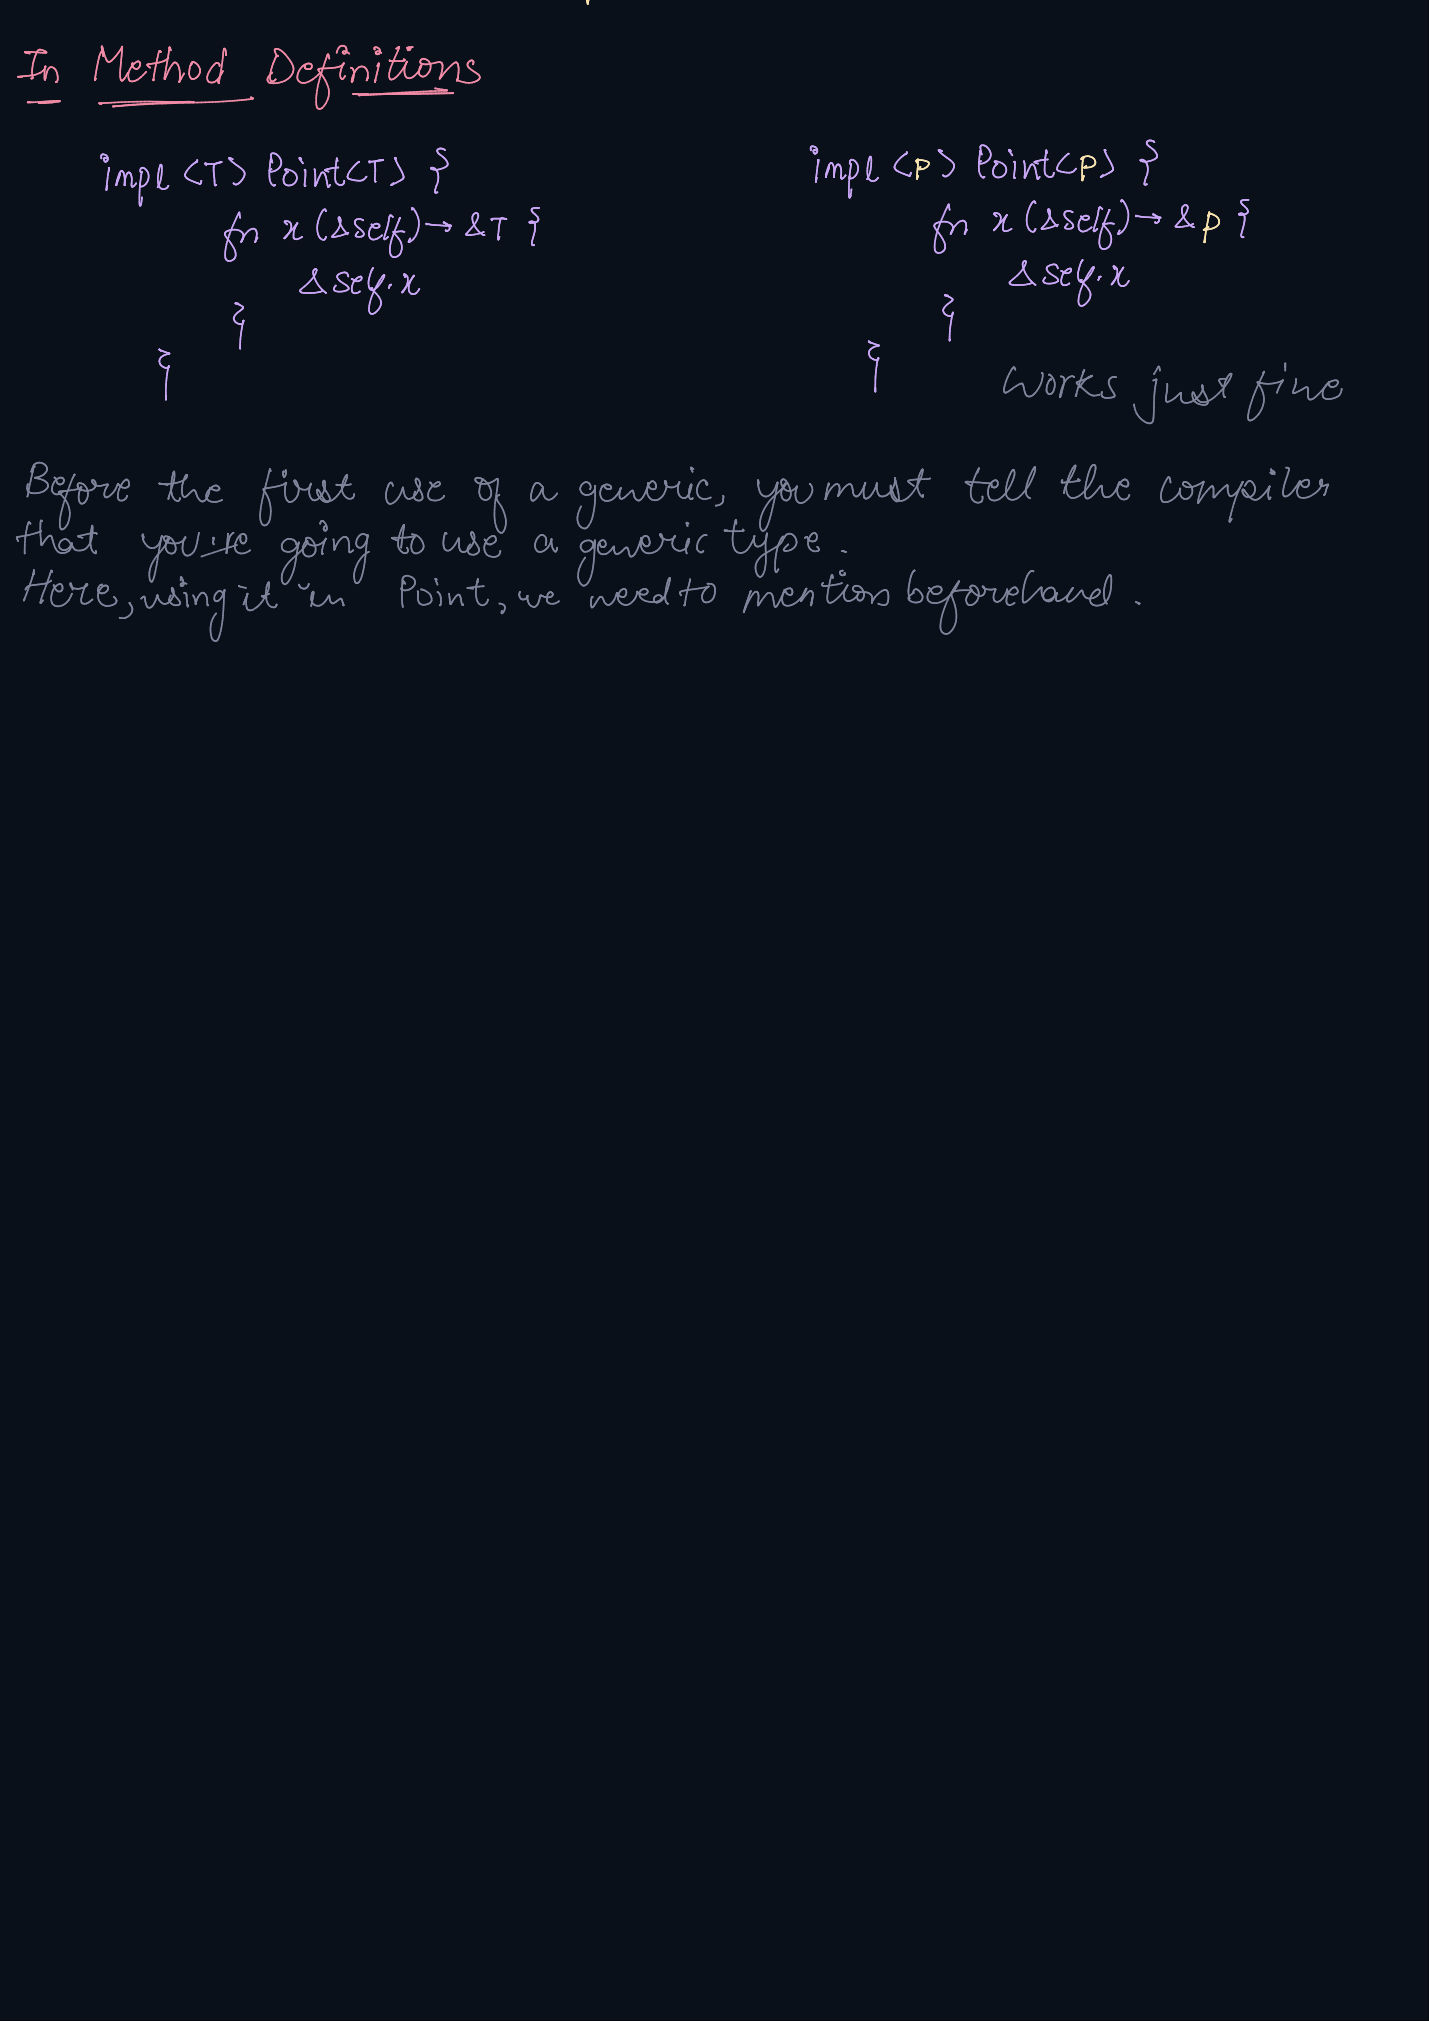 In Method Definitions
impl <T> Point<T> {
fn x (&self) → &T {
&self.x
}
}
impl <P> Point<P> {
fn x (&self) → &P {
&self.x
}
}
Works just fine
Before the first use of a generic, you must tell the compiler
that you're going to use a generic type.
Here, using it in Point, we need to mention beforehand.